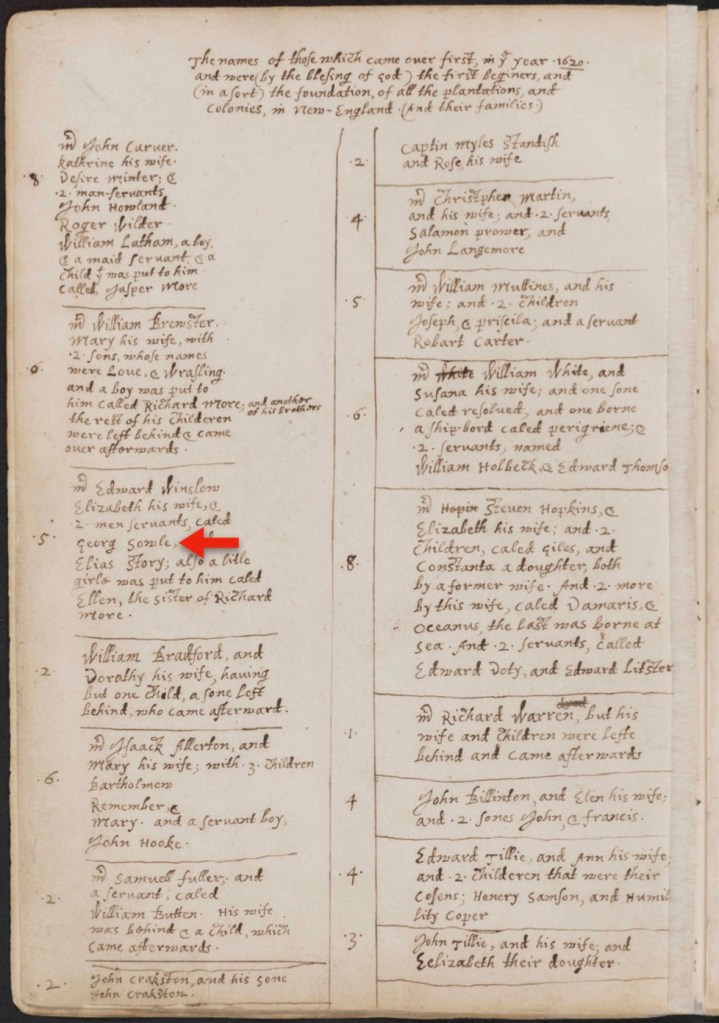 The names of those which came over first, in yᵉ year .1620.
and were (by the blesing of god) the first beginers, and
(in a sort) the foundation, of all the plantations, and
Colonies, in New-England. (And their families)
.8.
mʳ John Carver.
kathrine his wife.
Desire Minter; &
.2. man-servants
John Howland
Roger Wilder.
William Latham, a boy,
& a maid servant, & a
child yᵗ was put to him
called, Jasper More
.6.
mʳ William Brewster.
Mary his wife, with
.2. sons, whose names
were Love, & Wrasling.
and a boy was put to
him called Richard More; and another
of his brothers
the rest of his Childeren
were left behind & came
over afterwards.
.5.
mʳ Edward Winslow
Elizabeth his wife, &
2. men servants, caled
Georg Sowle,
Elias Story; also a litle
girle was put to him caled
Ellen, the sister of Richard
More.
.2.
William Bradford, and
Dorathy his wife, having
but one child, a sone left
behind, who came afterward.
.6.
mʳ Isaack Allerton, and
Mary his wife; with .3. children
Bartholmew
Remember, &
Mary. and a servant boy,
John Hooke.
.2.
mʳ Samuell fuller; and
a servant, caled
William Butten. His wife
was behind & a child, which
came afterwards.
.2.
John Crakston, and his sone
John Crakston.
.2.
Captin Myles Standish
and Rose, his wife
.4.
mʳ Christpher Martin,
and his wife; and .2. servants,
Salamon prower, and
John Langemore
.5.
mʳ William Mullines, and his
wife; and .2. children
Joseph, & priscila; and a servant
Robart Carter.
.6.
mʳ White William White, and
Susana his wife; and one sone
caled resolved, and one borne
a ship-bord caled perigriene; &
.2. servants, named
William Holbeck, & Edward Thomso
.8.
mʳ Hopin Steven Hopkins, &
Elizabeth his wife; and .2.
children, caled Giles, and
Constanta a doughter, both
by a former wife. And .2. more
by this wife, caled Damaris, &
Oceanus, the last was borne at
sea. And .2. servants, called
Edward Doty, and Edward Litster
.1.
mʳ Richard Warren, but his
wife and children were lefte
behind and came afterwards
4
John Billinton, and Elen his wife;
and .2. sones John, & francis.
.4.
Edward Tillie, and Ann his wife
and .2. childeren that were their
Cosens; Henery Samson, and Humil
lity Coper
.3.
John Tillie, and his wife; and
Eelizabeth their doughter.